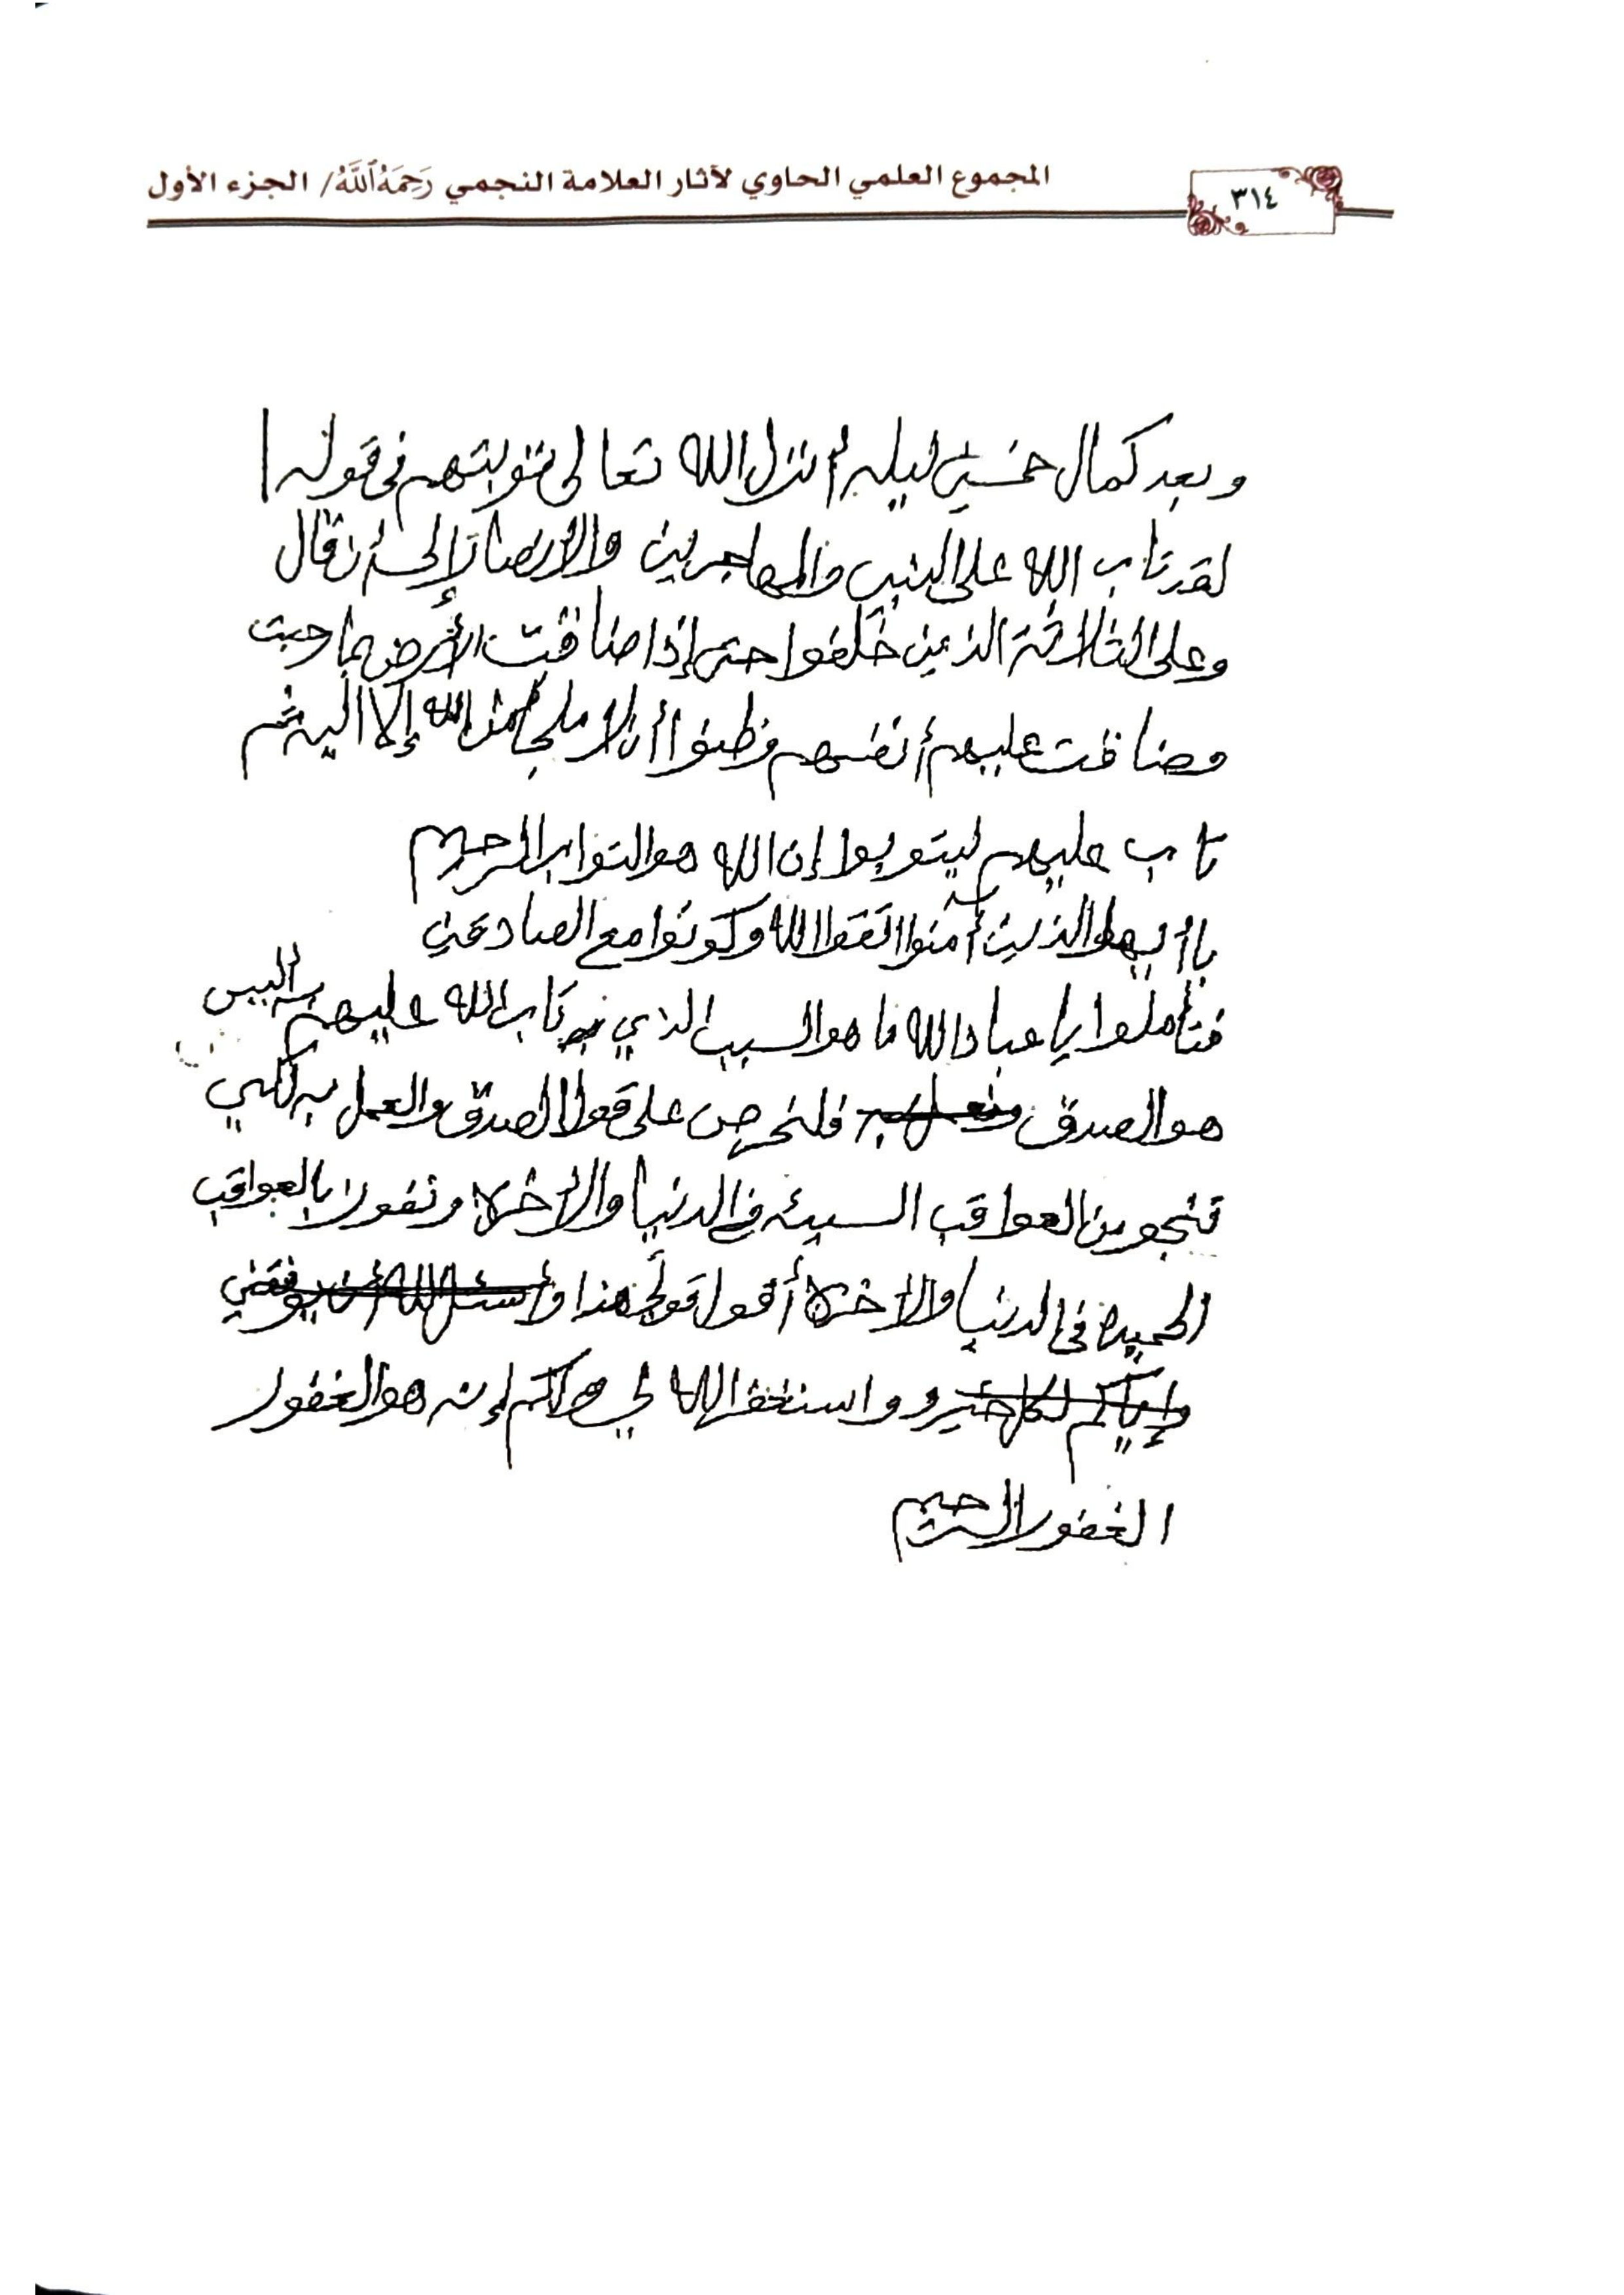 المجموع العلمي الحاوي لآثار العلامة النجمي رَحِمَهُ ٱللَّهُ / الجزء الأول
٣١٤
وبعد كمال خمسين ليله أنزل الله تعالى توبتهم في قوله
لقد تاب الله على النبي والمهاجرين والأنصار إلى أن قال
وعلى الثلاثة الذين خلفوا حتى إذا ضاقت الأرض بما رحبت
وضاقت عليهم أنفسهم وظنوا أن لا ملجأ من الله إلا اليه ثم
تاب عليهم ليتوبوا إن الله هو التواب الرحيم
يا أيها الذين آمنوا اتقوا الله وكونوا مع الصادقين
فتأملوا يا عباد الله ما هو السبب الذي به تاب الله عليهم أليس
هو الصدق فلنحرص على قول الصدق والعمل به لكي
ننجو من العواقب السيئه في الدنيا والأخرة ونفوز بالعواقب
الحميده في الدنيا والأخرة أقول قولي هذا وأسئل الله أن يوفقني
وإياكم لكل خير واستغفر الله لي ولكم إنه هو الغفور
الغفور الرحيم